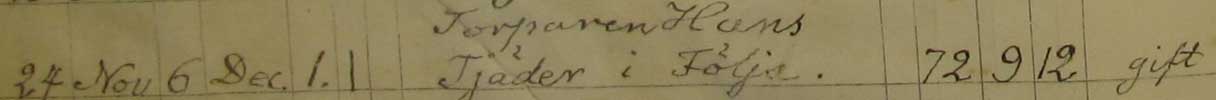 Torparen Hans
24 Nov 6 Dec. 1. 1 Tjäder i Följa. 72 9 12 gift